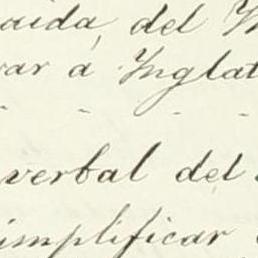 del
var á Inglat
verbal del
implificar